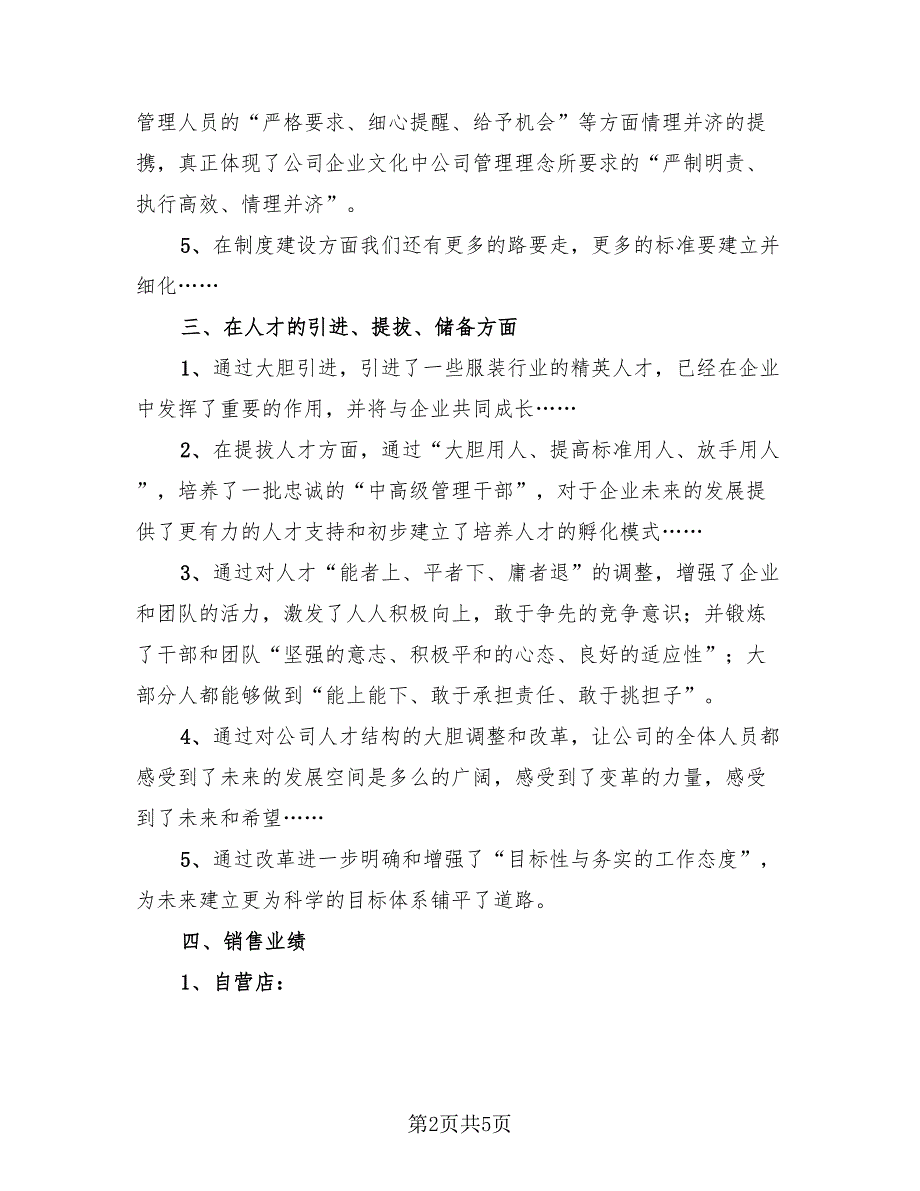 管理人员的“严格要求、细心提醒、给予机会”等方面情理并济的提
携，真正体现了公司企业文化中公司管理理念所要求的“严制明责、
执行高效、情理并济”。
5、在制度建设方面我们还有更多的路要走，更多的标准要建立并
细化……
三、在人才的引进、提拔、储备方面
1、通过大胆引进，引进了一些服装行业的精英人才，已经在企业
中发挥了重要的作用，并将与企业共同成长……
2、在提拔人才方面，通过“大胆用人、提高标准用人、放手用人
”，培养了一批忠诚的“中高级管理干部”，对于企业未来的发展提
供了更有力的人才支持和初步建立了培养人才的孵化模式……
3、通过对人才“能者上、平者下、庸者退”的调整，增强了企业
和团队的活力，激发了人人积极向上，敢于争先的竞争意识；并锻炼
了干部和团队“坚强的意志、积极平和的心态、良好的适应性”；大
部分人都能够做到“能上能下、敢于承担责任、敢于挑担子”。
4、通过对公司人才结构的大胆调整和改革，让公司的全体人员都
感受到了未来的发展空间是多么的广阔，感受到了变革的力量，感受
到了未来和希望……
5、通过改革进一步明确和增强了“目标性与务实的工作态度”，
为未来建立更为科学的目标体系铺平了道路。
四、销售业绩
1、自营店：
第2页共5页